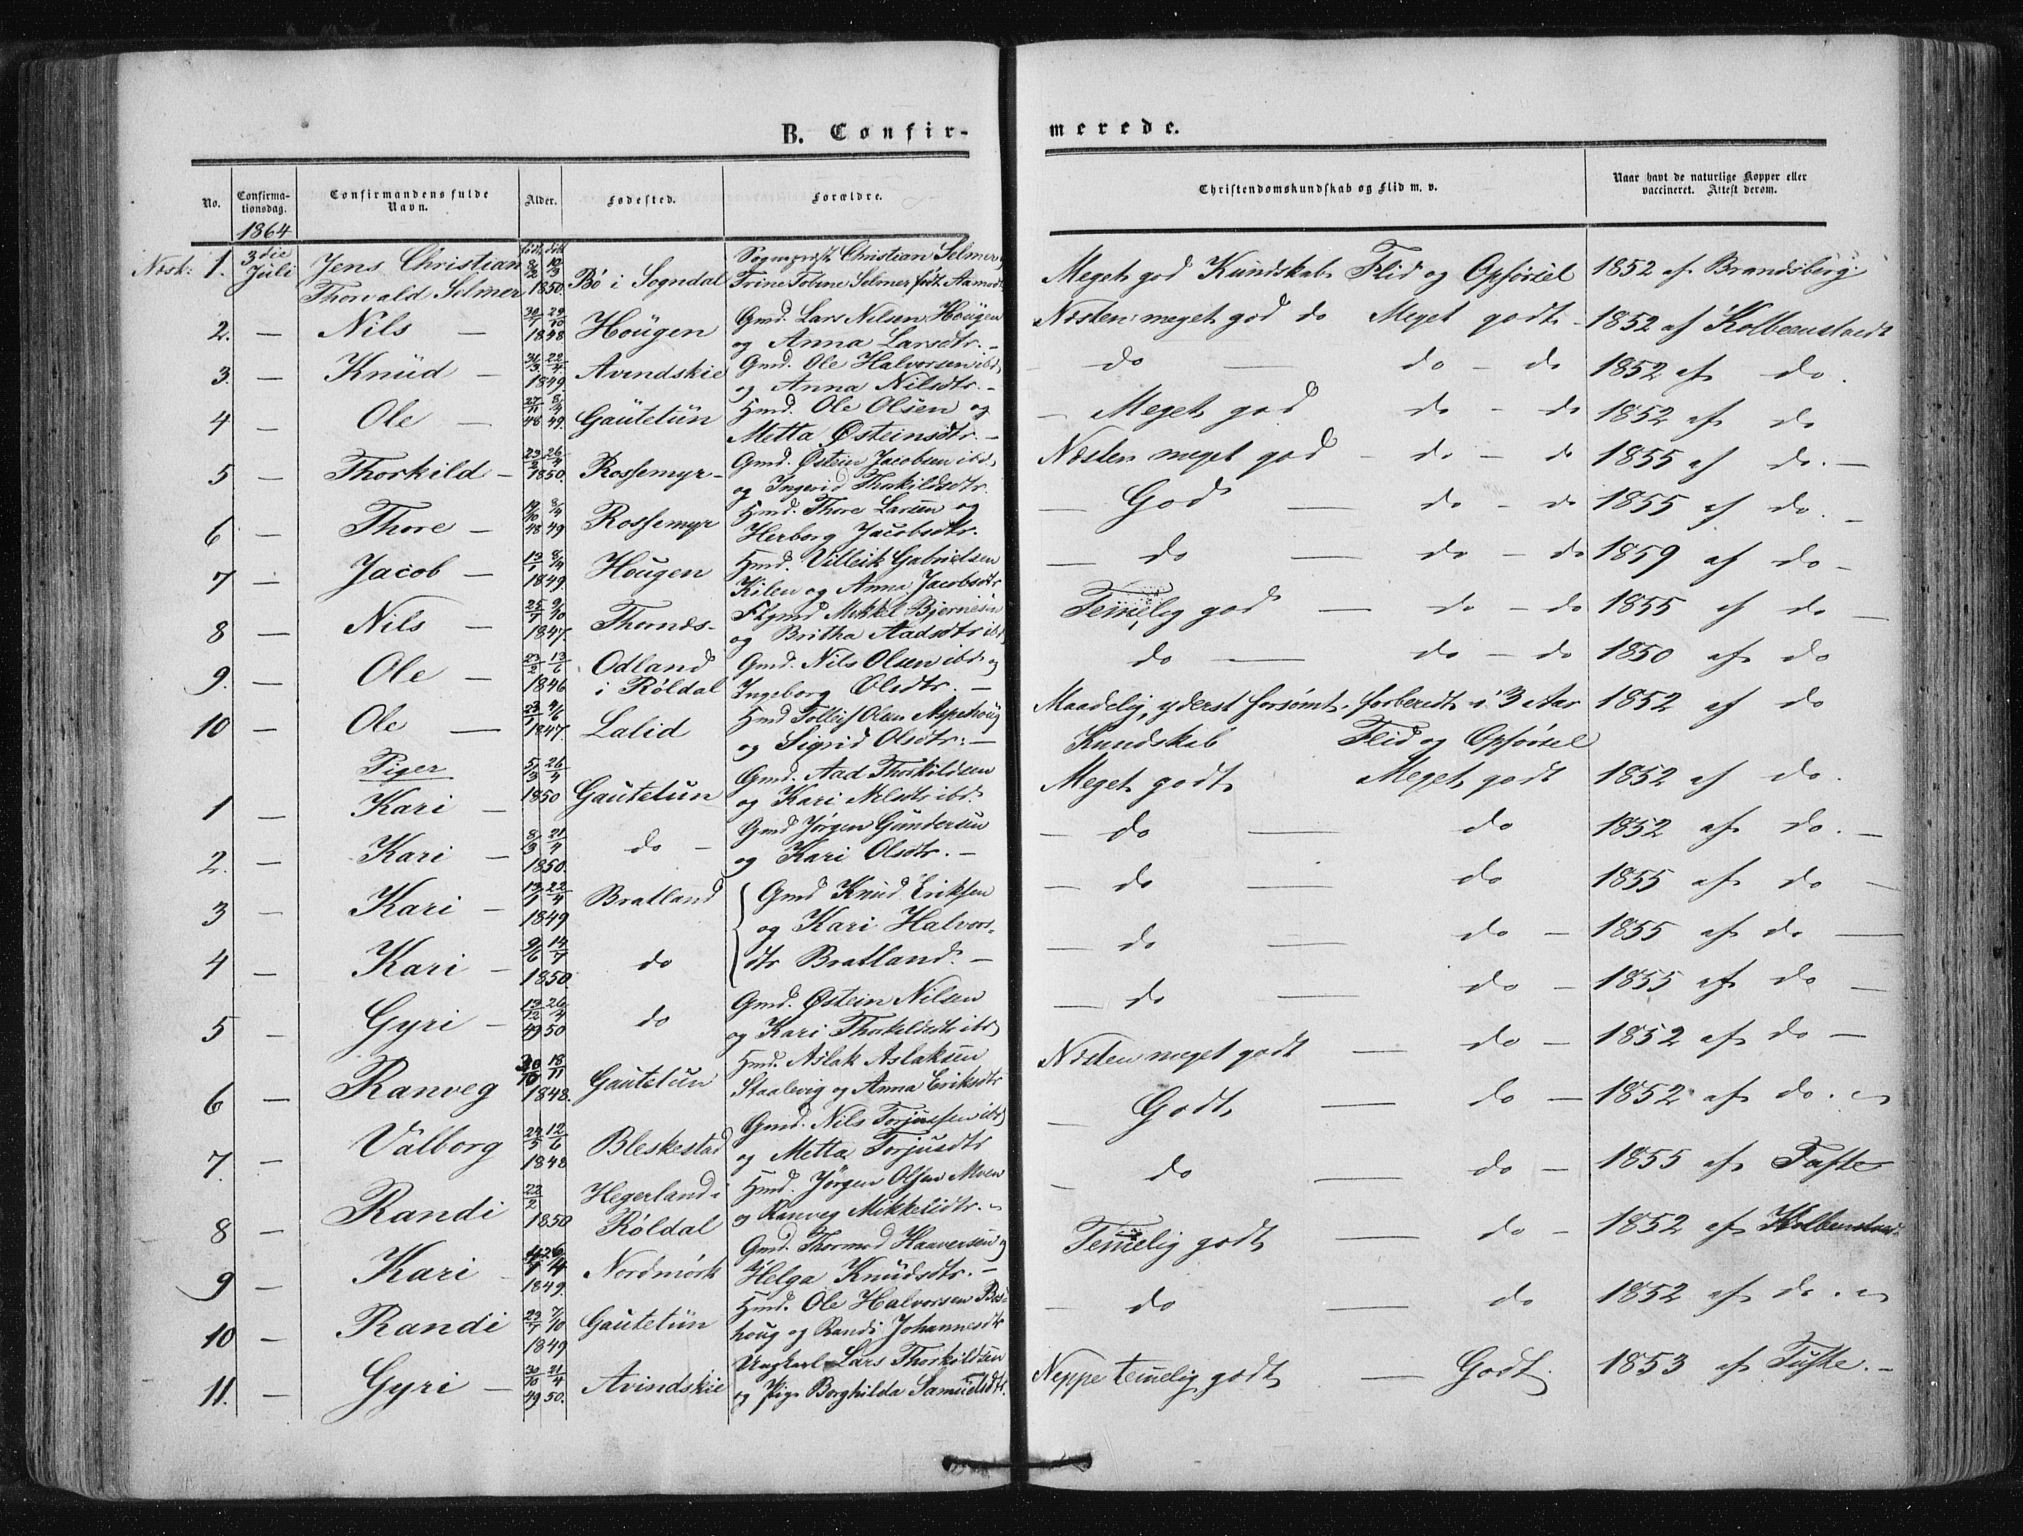 B. Confir-
merede.
No.
Confirma-
tionsdag.
Confirmandens fulde
Navn.
Alder.
Fødested.
Forældre.
Christendomskundskab og Flid m. v.
Naar havt de naturlige Kopper eller
vaccineret. Attest derom.
1864
1. 3die Juli Jens Christian Thorvald Selmer 1850. Bø i Sogndal Sognepræst Christian Selmer og Trine Tobine Selmer født Aamodt Meget god Kundskab Flid og Opførsel 1852 af Brandsberg.
2. — Nils — 1848 Hougen Gmd. Lars Nilsen Hougen og Anna Larsdtr. — Næsten meget god do Meget godt — 1852 af Kolbeenstvedt
3. — Knud — 1849. Avindskie Gmd. Ole Halvorsen ibd. og Anna Nilsdtr. — do — do — do 1852 af do.
4 — Ole — 48 49. Gautetun Hmd. Ole Olsen og Metta Østeinsdtr. — — Meget god do — do 1852 af do
5 — Thorkild — 1850. Rossemyr — Gmd. Østein Jacobsen ibd. og Ingerid Thorkildsdtr. Næsten meget god — do — do 1855 af do. —
6 — Thore — 48 49 Rossemyr Hmd. Thore Larsen og Herborg Jacobsdtr. — God — do — do 1855 af do. —
7 — Jacob — 1849. Hougen Hmd. Villeik Gabrielsen Kilen og Anna Jacobsdtr — do — do — do 1859 af do —
8 — Nils — 1847. Thornæs — Mikkel Bjørnesen og Britha Aadsdtr ibd Temelig god — do — do 1855 af do —
9. — Ole — 1846 Odland i Røldal Gmd. Nils Olsen ibd. og Ingeborg Olsdtr. — do — do — do 1850 af do
10 — Ole — 1847. Lalid Hmd Tolleif Olsen Aspehoug og Sigrid Olsdtr. — Maadelig, yderst forsømt, forberedt i 3 Aar 1852 af do
Piger
Kundskab Flid og Opførsel
1 Kari — 1850 Gautetun Gmd. Aad Thorkildsen og Kari Nilsdtr ibd. Meget godt Meget godt 1852 af do.
2. — Kari — 1850. do — Gmd Jørgen Gundersen og Kari Olsdtr. — — do — do 1852 af do. —
3 — Kari — 1849 Bratland Gmd Knud Eriksen og Kari Halvors- dtr Bratland. — — do — do 1855 af do —
4 — Kari — 1850. do — do — do — 1855 af do —
5 — Gyri — 49 50 do Gmd. Østein Nilsen og Kari Thorkildsdtr ibd — do — do — 1855 af do —
6 — Ranveg 1848. Gautetun Hmd. Aslak Aslaksen Staalevig og Anna Eriksdtr Næsten meget godt — do — 1852 af do —
7. — Valborg 1848 Bleskestad Gmd. Nils Torjussen ibd og Metta Torjusdtr — Godt — do — 1852 af do.
8 — Randi 1850 Hegerland i Røldal Hmd. Jørgen Olsen Moen og Ranveg Mikkelsdtr. — do — do — 1855 af Tufte
9 — Kari — 1849. Nordmørk Gmd. Thormod Haaversen og Helga Knudsdtr. — Temelig godt — do — 1852 af Kolbenstvedt
10 — Randi 1849 Gautetun Hmd. Ole Halvorsen Bes- houg og Randi Johannesdtr — do — do 1852 af do.
11. — Gyri — 49 50. Avindskie Ungkarl Lars Thorkildsen og Pige Borghilda Samuelsdtr. Neppe temelig godt — Godt. 1853 af Tufte. —